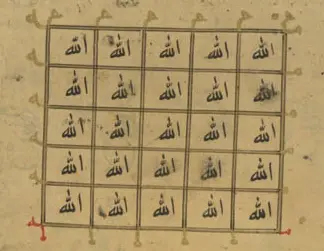 الله الله الله الله الله
الله الله الله الله الله
الله الله الله الله الله
الله الله الله الله الله
الله الله الله الله الله